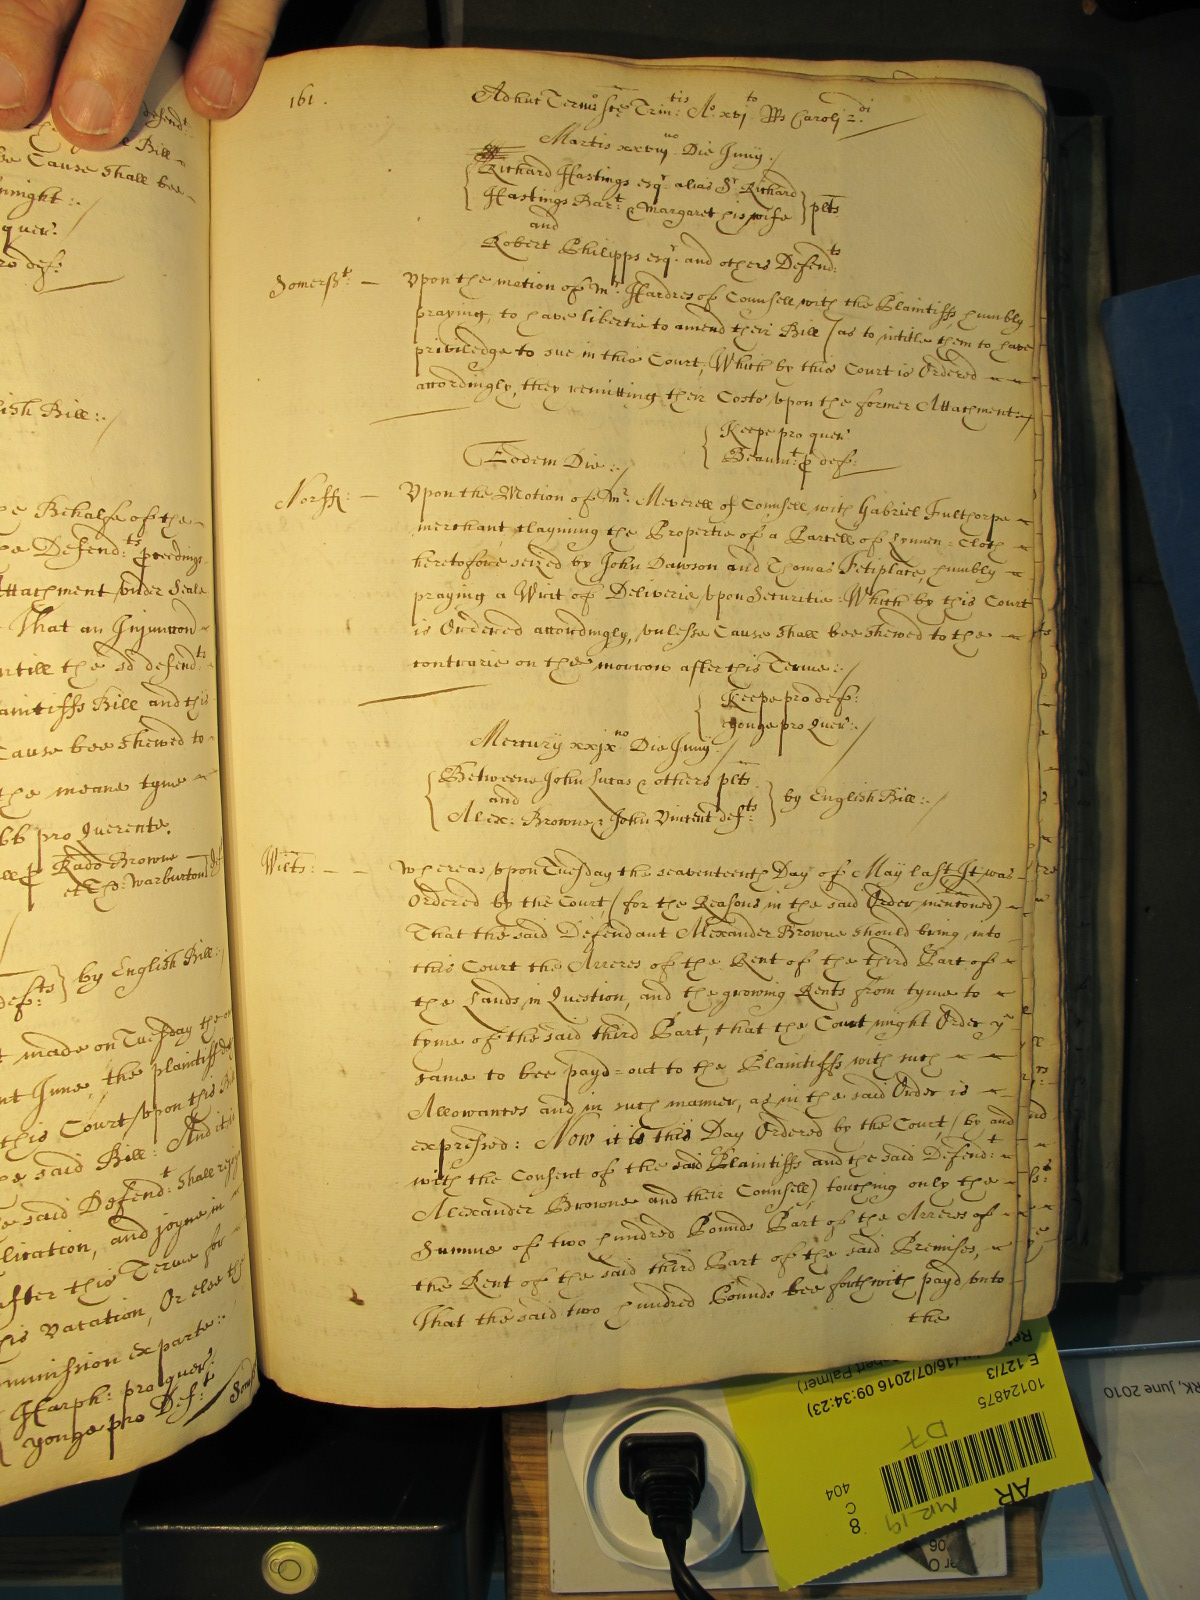 161.
Adhuc Termio Sce Trin:tis Ao xvj to Rs Caroli 2.di
Martis xxviij no Die Junij:
Richard Hastings esqr. alias Sr Richard
Hastings Bart. & Margaret his wife } plts
and
Robert Philipps esqr. and others Defend:ts
Somersett: —
Vpon the motion of Mr. Hardres of Counsell, with the Plaintiffs, humbly
praying, to have libertie to amend their Bill (as to intitle them to have
priviledge to sue in this Court, Which by this Court is Ordered
accordingly, they remitting their Costs vpon the former Attachment:
Keepe pro quer:
Beaum:t p def:
Eodem Die:
Norff: —
Vpon the Motion of Mr. Meverell of Counsell, with Gabriel Fulthorpe
merchant clayming the Propertie of a Parcell of Lynnen=Cloth
heretofore seized by John Dawson and Thomas Fetiplace, humbly
praying a Writ of Deliverie vpon Securitie: Which by this Court
is Ordered accordingly, vnlesse Cause shall bee shewed to the
contrarie on the morrow after this Terme:
Keepe pro def:
Yonge pro Quer:
Mercurij xxjx no Die Junij:
Betweene John Lucas & others plts
and
Alex: Browne & John Vincent def:ts
} by English Bill:
Wilts: — —
Whereas vpon Tuesday the seaventeenth Day of May last It was
Ordered by the Court (for the Reasons in the said Order mentioned)
That the said Defendant Alexander Browne should bring into
this Court the Arreres of the Rent of the third Part of
the Lands in Question, and the growing Rents from tyme to
tyme of the said third Part, that the Court might Order ye
same to bee payd=out to the Plaintiffs with such
Allowances and in such manner, as in the said Order is
expressed: Now it is this Day Ordered by the Court (by and
with the Consent of the said Plaintiffs and the said Defend:t
Alexander Browne and their Counsell) touching only the
Summe of two hundred Pounds Part of the Arreres of
the Rent of the said third Part of the said Premises,
That the said two hundred Pounds bee forthwith payd vnto
the
defend:t
Bill
Cause shall bee
quer:
pro def:
English Bill:
Behalfe of the
Defend:ts proceedings
Attachment vnder Seale
That an Injunccion
vntill the sd defend:ts
Plaintiffs Bill and this
Cause bee shewed to
the meane tyme
pro Querente.
Rado Browne
et Tho: Warburton
by English Bill:
made on Tuesday the
June, the plaintiff
this Court vpon this
said Bill: And it is
said Defend:t shall
and joyne in
after this Terme for
this Vacation, Or else the
Commission ex parte:
Harph: pro quer:
Yonge pro Def:t
AR
8
C
404
10124875
E 127/3
16/07/2016 09:34:23)
Palmer)
June 2010